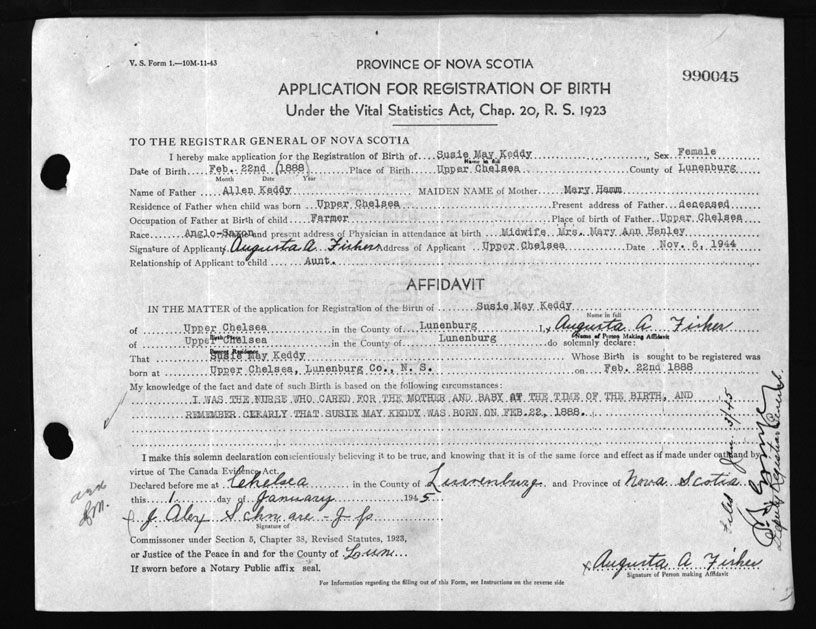 V. S. Form 1.—10M-11-43
PROVINCE OF NOVA SCOTIA
990045
APPLICATION FOR REGISTRATION OF BIRTH
Under the Vital Statistics Act, Chap. 20, R. S. 1923
TO THE REGISTRAR GENERAL OF NOVA SCOTIA
I hereby make application for the Registration of Birth of Susie May Keddy Sex Female
Name in full
Date of Birth Feb. 22nd (1888) Place of Birth Upper Chelsea County of Lunenburg
Month Date Year
Name of Father Allen Keddy MAIDEN NAME of Mother Mary Hamm
Residence of Father when child was born Upper Chelsea Present address of Father deceased
Occupation of Father at Birth of child Farmer Place of birth of Father Upper Chelsea
Race Anglo-Saxon and present address of Physician in attendance at birth Midwife Mrs. Mary Ann Henley
Signature of Applicant Augusta A. Fisher Address of Applicant Upper Chelsea Date Nov. 6, 1944
Relationship of Applicant to child Aunt.
AFFIDAVIT
IN THE MATTER of the application for Registration of the Birth of Susie May Keddy
Name in full
of Upper Chelsea in the County of Lunenburg I, Augusta A Fisher
Name of Person Making Affidavit
of Upper Chelsea in the County of Lunenburg do solemnly declare:
That Susie May Keddy Whose Birth is sought to be registered was
born at Upper Chelsea, Lunenburg Co., N. S. on Feb. 22nd 1888
My knowledge of the fact and date of such Birth is based on the following circumstances:
I WAS THE NURSE WHO CARED FOR THE MOTHER AND BABY AT THE TIME OF THE BIRTH, AND
REMEMBER CLEARLY THAT SUSIE MAY KEDDY WAS BORN ON FEB. 22, 1888.
I make this solemn declaration conscientiously believing it to be true, and knowing that it is of the same force and effect as if made under oath and by
virtue of The Canada Evidence Act.
Declared before me at Chelsea in the County of Lunenburg and Province of Nova Scotia
this 1 day of January 1945
J Alex Schnare - J P
Signature of
Commissioner under Section 5, Chapter 38, Revised Statutes, 1923,
or Justice of the Peace in and for the County of Lun
If sworn before a Notary Public affix seal.
Augusta A. Fisher
Signature of Person making Affidavit
For Information regarding the filling out of this Form, see Instructions on the reverse side
Filed Jan. 3/45
Deputy Registrar General